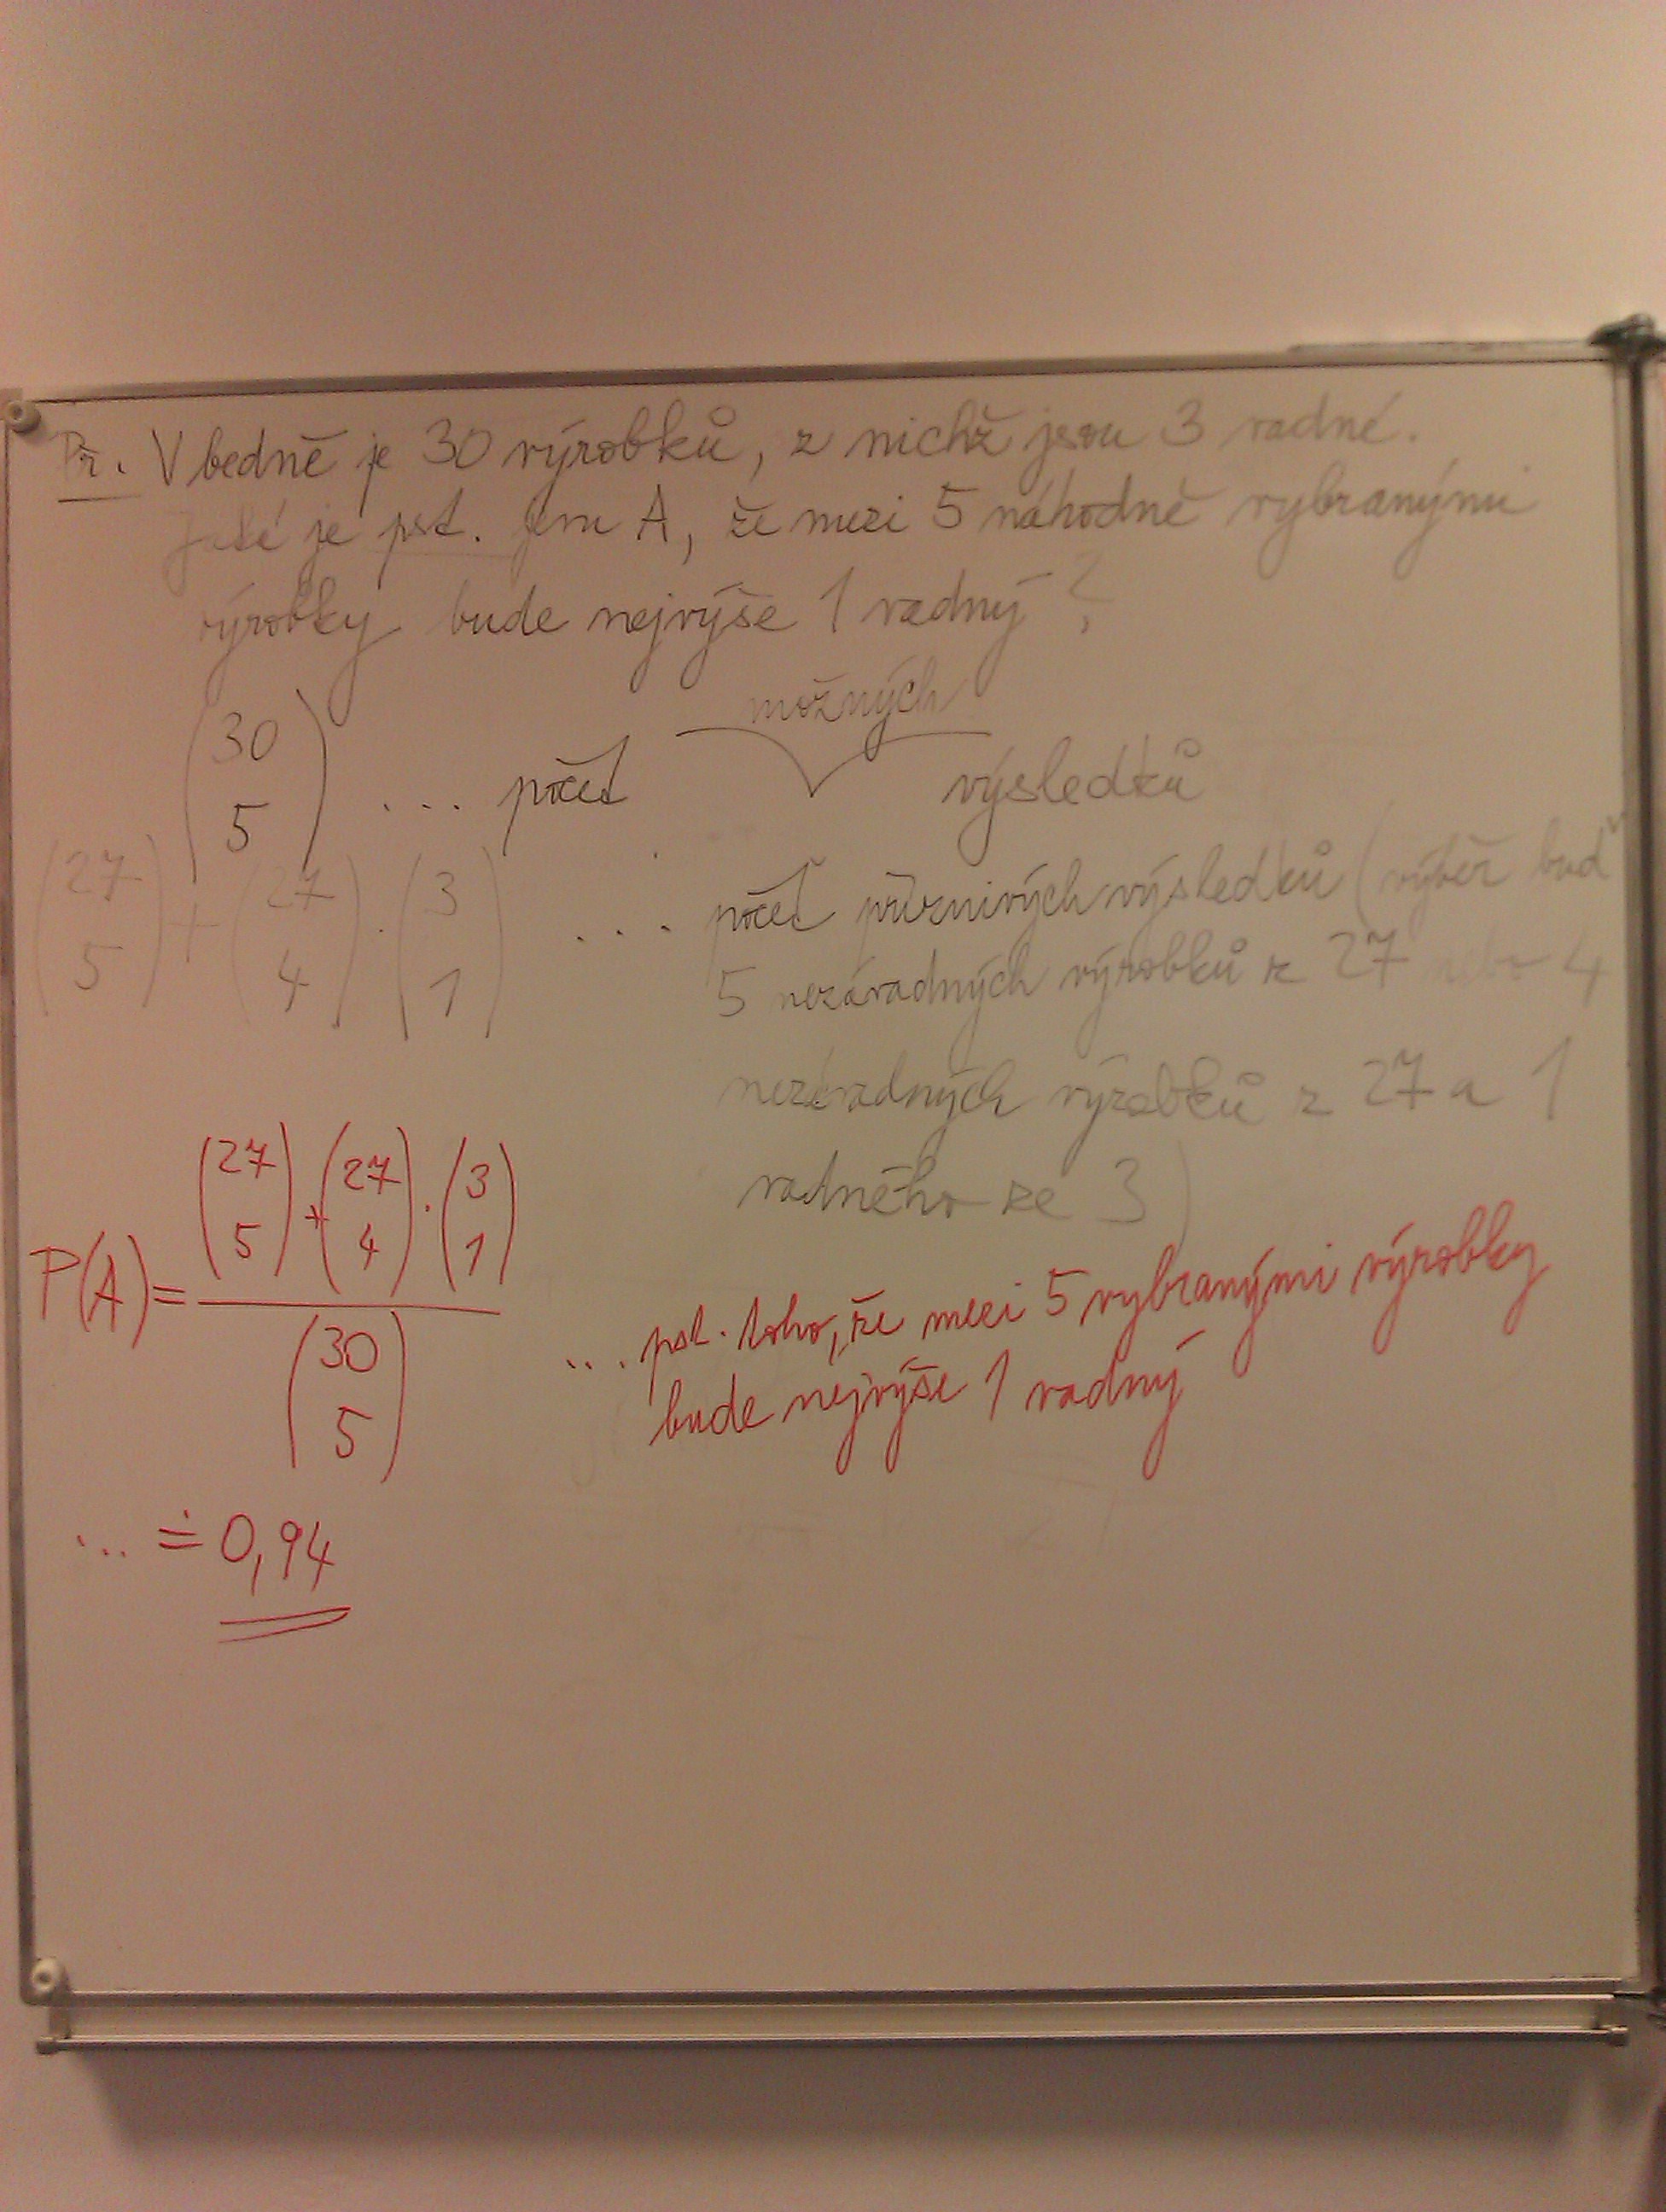 Př. V bedně je 30 výrobků, z nichž jsou 3 vadné.
Jaká je pst. jevu A, že mezi 5 náhodně vybranými
výrobky bude nejvýše 1 vadný?
možných
(30 5) ... počet výsledků
(27 5) + (27 4) . (3 1) ... počet příznivých výsledků (výběr buď
5 nezávadných výrobků z 27 nebo 4
nezávadných výrobků z 27 a 1
vadného ze 3)
P(A) = ((27 5) + (27 4) . (3 1)) / (30 5) ... pst. toho, že mezi 5 vybranými výrobky
bude nejvýše 1 vadný
... ≐ 0,94